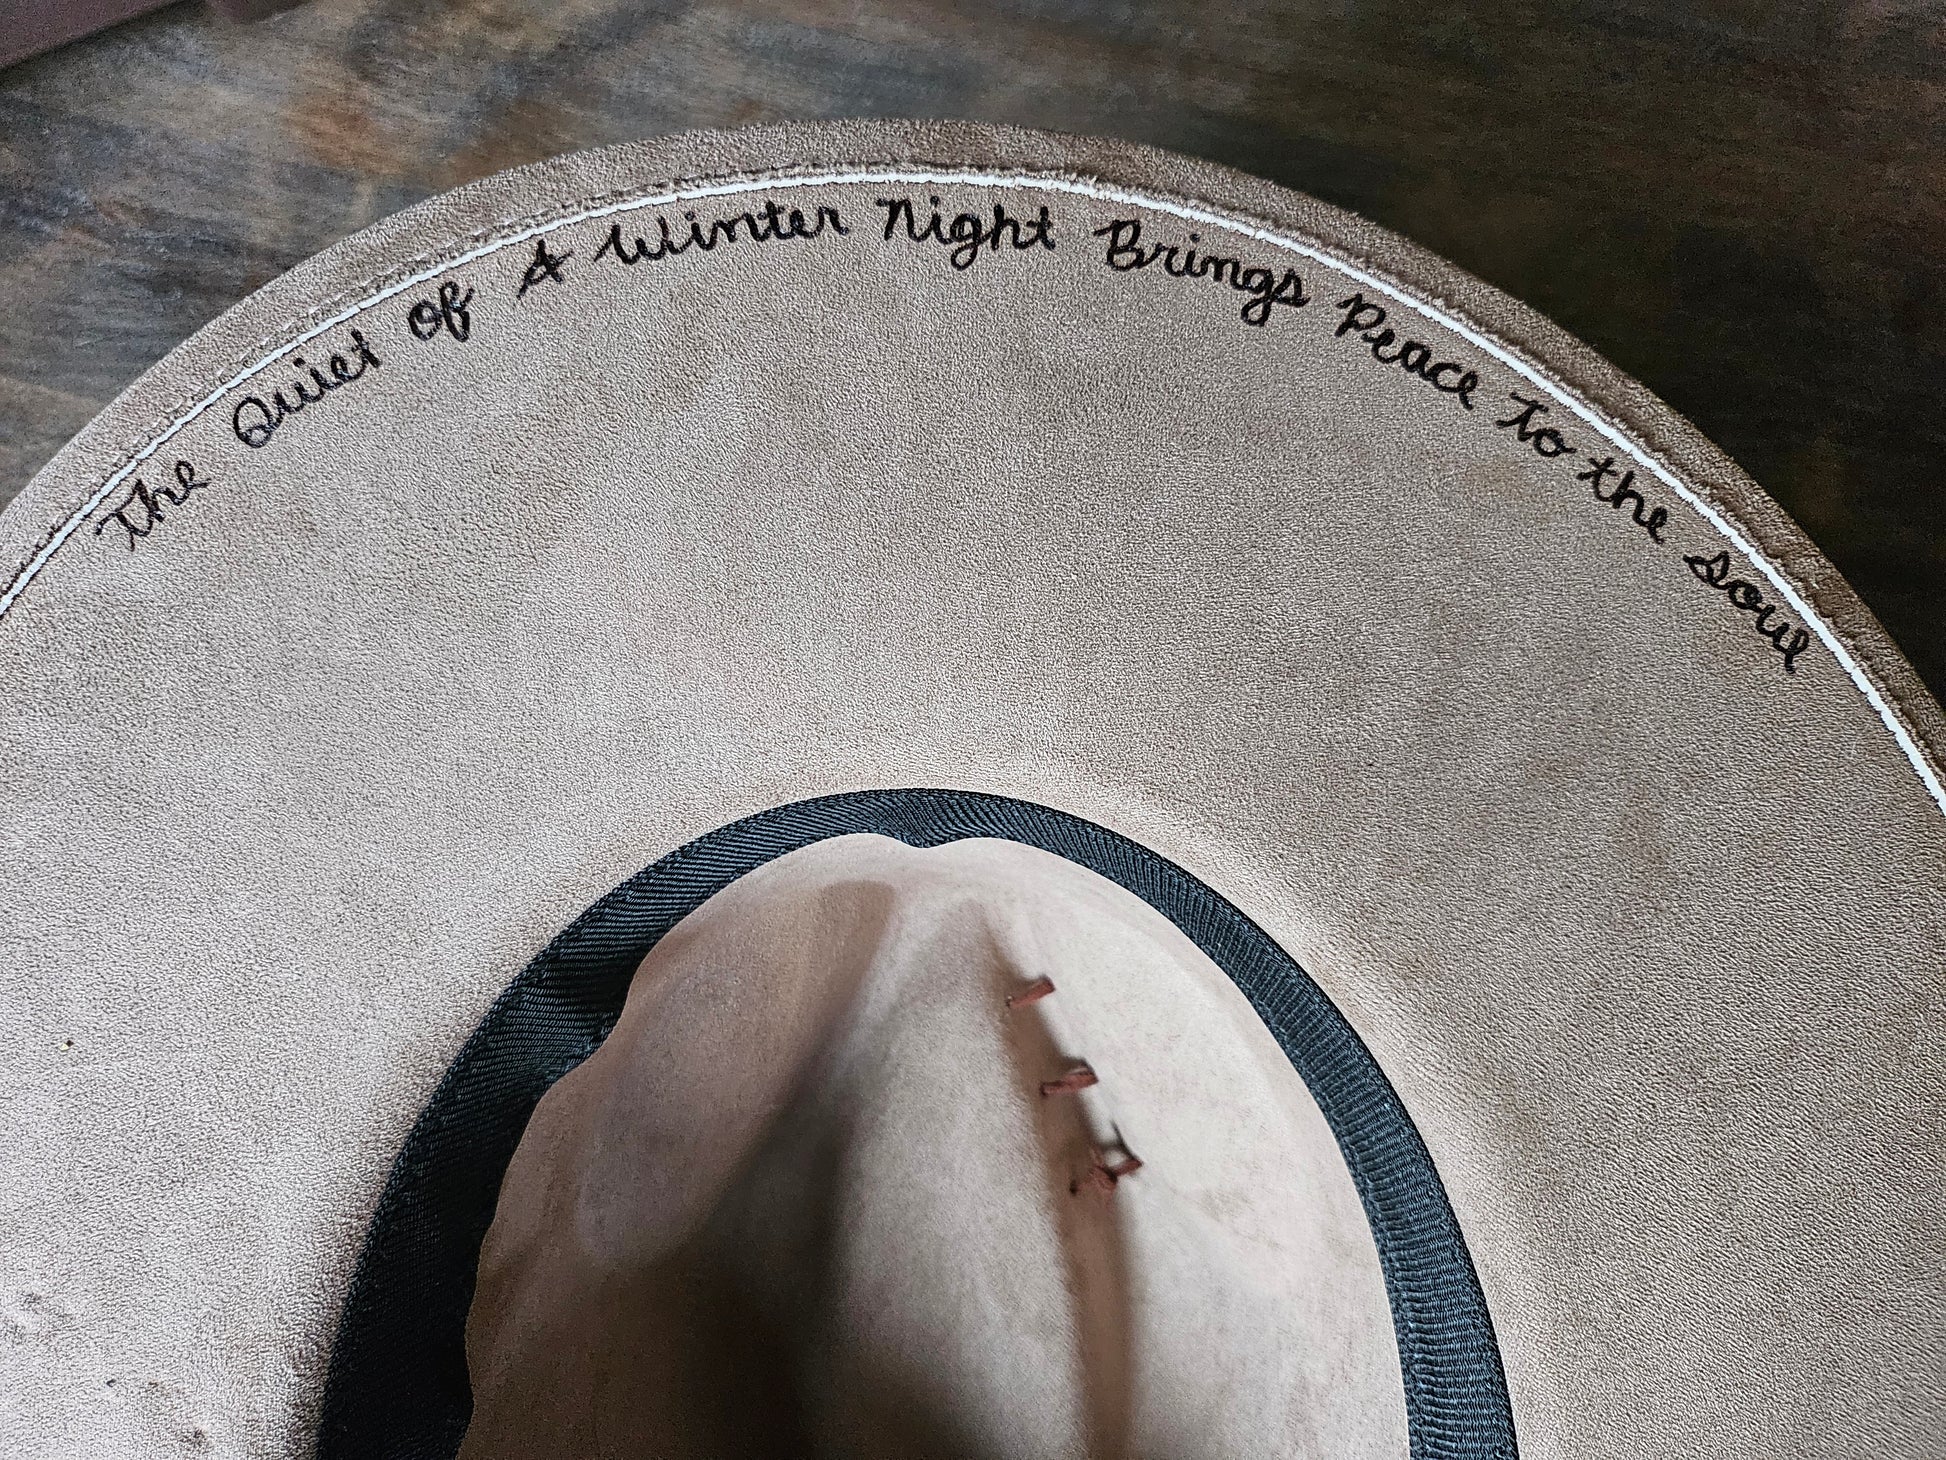 The Quiet of A Winter Night Brings Peace To the soul